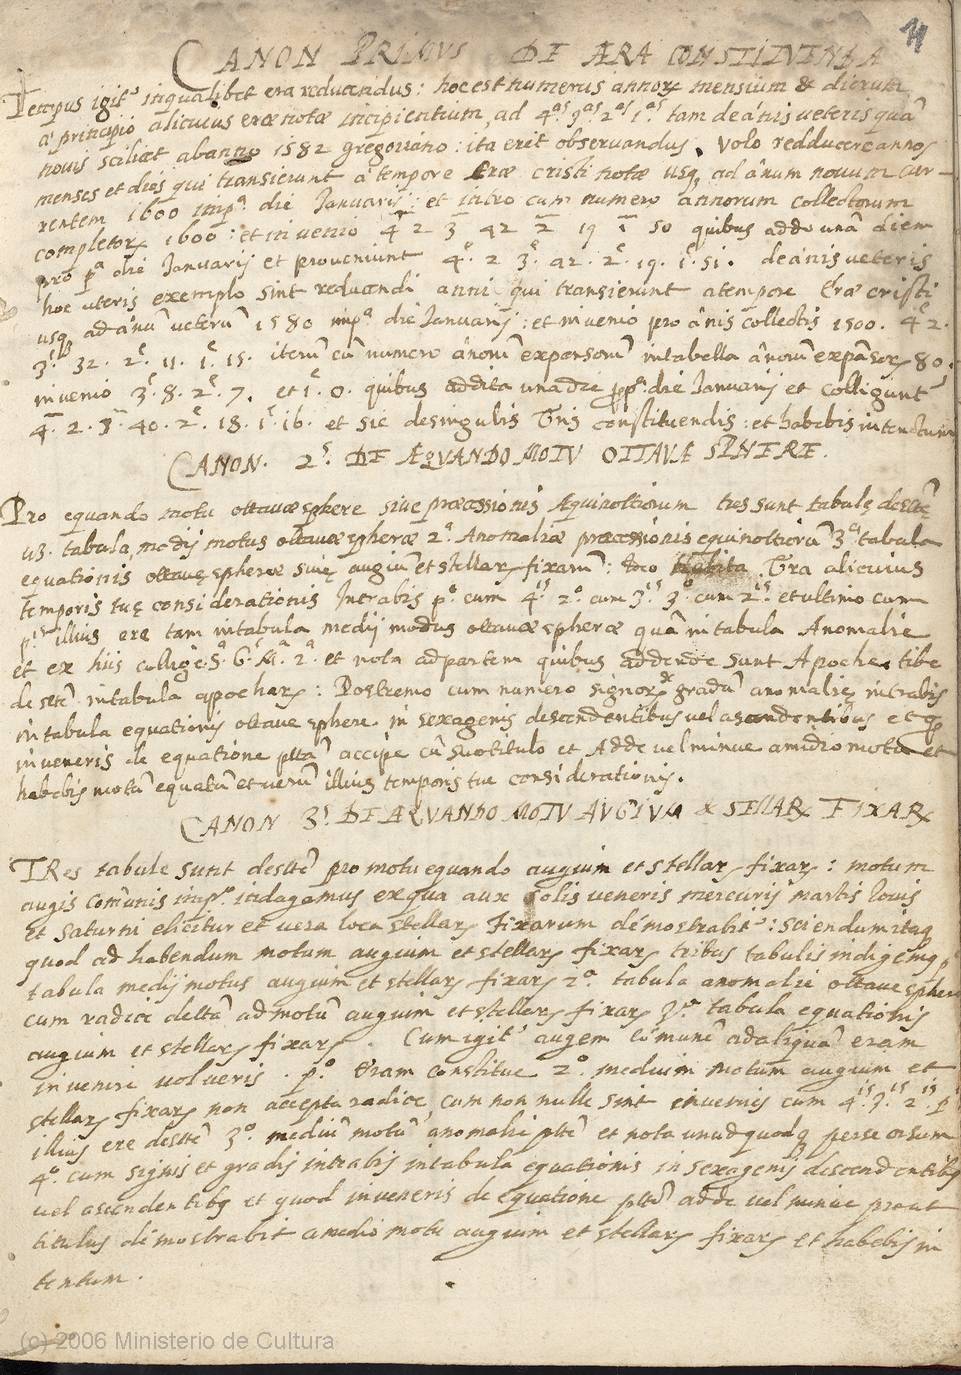 CANON PRIMUS DE ÆRA CONSTITVENDA
Tempus igit᷒ in qualibet era reducendus: hoc est numerus annoꝝ mensium & dierum
a principio alicuius eræ notæ incipientium, ad 4ᵃˢ 3ᵃˢ 2ᵃˢ 1ᵃˢ tam de ānis veteris quā
novis scilicet ab anno 1582 gregoriano: ita erit observandus. Volo redducere annos
menses et dies qui transierunt a tempore Eræ cristi notæ usq, ad ānum novum cur-
rentem 1600 impᵃ. die Januarij: et intro cum numero annorum collectorum
completorꝝ 1600: et invenio 4 2 3 42 2 19 1 50 quibus addo unā diem
pro pᵃ die Januarij et proveniunt 4. 2 3. 42. 2. 19. 1. 51. de ānis veteris
hoc uteris exemplo sint reducendi anni qui transierunt a tempore Eræ cristi
usq, ad ānū veterū 1580 impᵃ die Januarij: et invenio pro ānis collectis 1500. 4 2.
3. 32. 2. 11. 1. 15. iterū cū numero ānorū expansorū in tabella ānorū expāsorꝝ 80.
invenio 3. 8. 2. 7. et 1. 0. quibus addita una die ꝓ pᵃ. die Januarij et colligunt᷒
4. 2. 3. 40. 2. 18. 1. 16. et sic de singulis Eris constituendis: et habebis intentum
CANON. 2ˢ. DE ÆQVANDO MOTV OTTAVÆ SPHERE.
Pro equando motu ottavæ sphere sive præcessionis Æquinottiorum tres sunt tabulę desītę
us. tabula, medij motus ottavæ spheræ 2ᵃ. Anomaliæ præcessionis equinottiorū 3ᵃ tabula
equationis ottavę spheræ sivę augiū et stellarꝝ fixarū: loco habita Era alicuius
temporis tuę considerationis Intrabis pᵒ cum 4ⁱˢ 2ᵒ cum 3ⁱˢ 3ᵒ cum 2ⁱˢ et ultimo cum
pⁱˢ illius ere tam in tabula medij modus ottavæ spheræ quā in tabula Anomalie
et ex hiis collige S. G. M. 2ᵃ et nota ad partem quibus addendæ sunt Apoche tibe
desītē in tabula apocharꝝ: Postremo cum numero signorꝝ & graduū anomalię intrabis
in tabula equationis ottave sphere in sexagenis descendentibus vel ascendentibus et ꝙ
inveneris de equatione pītā accipe cū suo titulo et Adde vel minue a medio motu et
habebis motū equatū et verū illius temporis tue considerationis.
CANON 3ˢ DE ÆQVANDO MOTV AVGIVM & STELLARꝝ FIXARꝝ
TRes tabule sunt desītē pro motu equando augium et stellarꝝ fixarꝝ: motum
augis comūnis imprᵒ. indagamus ex qua aux Solis veneris mercurij martis Iovis
et saturni elicitur et vera loca stellarꝝ Fixarum demostrabit᷒: sciendum itaq
quod ad habendum motum augium et stellarꝝ fixarꝝ tribus tabulis indigemꝯ pᵃ
tabula medij motus augium et stellarꝝ fixarꝝ 2ᵃ. tabula anomalie ottave sphere
cum radice deltā ad motū augium et stellarꝝ fixarꝝ 3ᵃ tabula equationis
augium et stellarꝝ fixarꝝ. Cum igit᷒ augem comunē ad aliquā eram
invenire volveris. pᵒ. Eram constitue 2ᵒ. medium motum augium et
stellarꝝ fixarꝝ non accepta radice, cum non nulle sint invenies cum 4ⁱˢ 3ⁱˢ 2ⁱˢ pⁱˢ
illius ere desītē 3ᵒ. mediū motū anomalie pītē et nota unūdquodq perse orsum
4ᵒ. cum signis et gradis intrabis in tabula equationis in sexagenis descendentibꝯ
vel ascendentibꝯ et quod inveneris de equatione pītē adde vel minue prout
titulus demostrabit a medio motu augium et stellarꝝ fixarꝝ et habebis in
tentum.
(c) 2006 Ministerio de Cultura